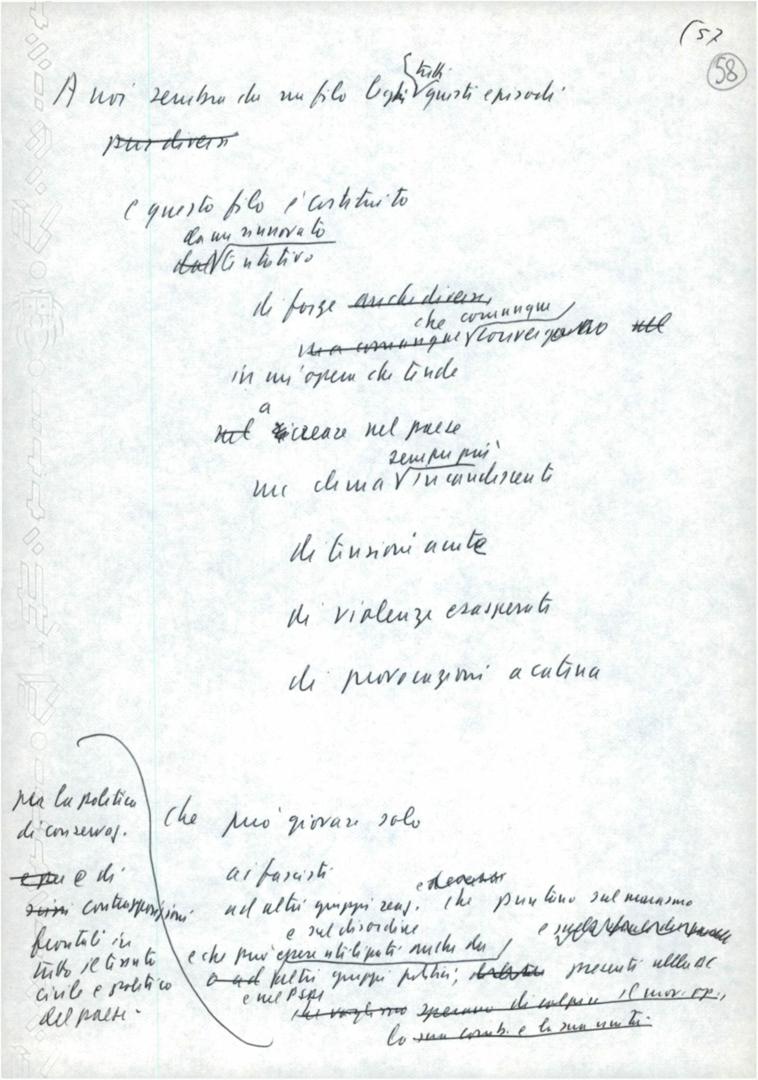 (57
58
tutti
A noi sembra che un filo leghi questi episodi
pur diversi
e questo filo è costituito
da un rinnovato
dal tentativo
di forze anche diverse,
che comunque
ma comunque convergono nel
in un'opera che tende
a
nel ricreare nel paese
sempre più
un clima incandescente
di tensioni acute
di violenze esasperate
di provocazioni a catena
che può giovare solo
ai fascisti
ad altri gruppi reaz. che puntano sul marasmo
e sul disordine
e che può essere utilizzato anche da
o ad altri gruppi politici, presenti nella DC
e nel PSDI
che vogliono sperano di colpire il mov. op.,
la sua comb. e la sua unità
per la politica
di conservaz.
e di
contrapposizioni
frontali in
tutto il tessuto
civile e politico
del paese.